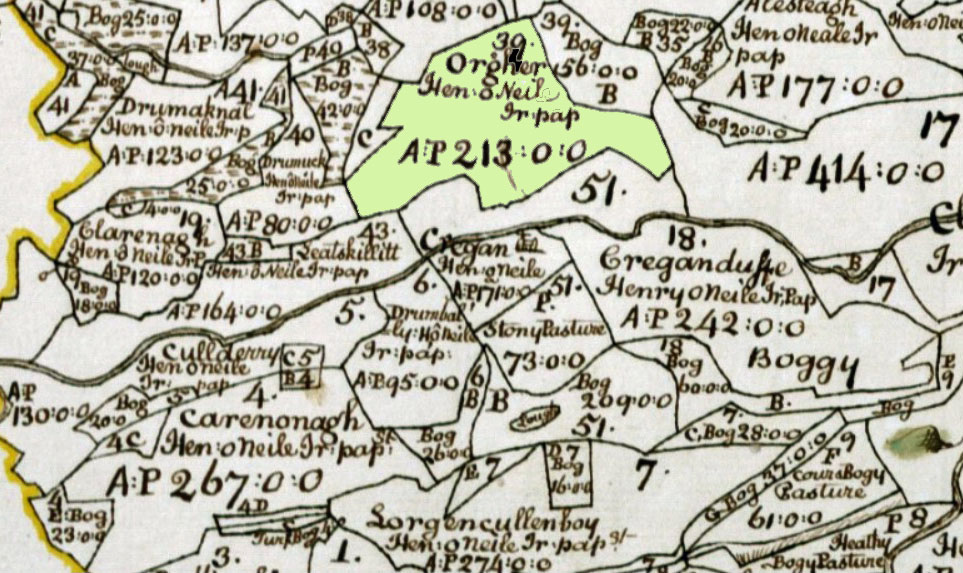 41
Bog 25:0:0
C
37:0:0
Lough
A:P:137:0:0
D38
B
38
P 40
A:P 108:0:0
39.
Bog
156:0:0
B
Bog 22:0:0
B 35
Bog
20:0
Hen:oNeale Ir
pap
A:P 177:0:0
39.
Orgher
Hen:ôNeile
Ir:pap
A:P 213:0:0
A
Bog
41
A41
41
Drumaknal
Hen:ô:neile Ir:p
A:P:123:0:0
B
Bog
42:0:0
C
B
40
Bog
25:0:0
Drumuck
Hen:oNeile
Ir:pap
A:P 80:0:0
C
Bog 20:0:0
17
A:P 414:0:0
51.
C
19.
Clarenagh
Hen:ô Neile Ir:P
A:P 120:0:0
19
Bog
18:0:0
43 B
43.
Leatskillitt
Hen:ô Neile Ir:pap
A:P 164:0:0
Cregan
Hen:oNeile
A:P 171:0:0
51.
P.
Stony Pasture
73:0:0
18.
Creganduffe
Henry oNeile Ir:Pap
A:P 242:0:0
B
17
Ir
6.
5.
Drumbal
ly:H:ôNeile
Ir:pap:
A:P 95:0:0
6
B
B
18
Bog
60:0:0
Boggy
E
9
Cullderry
Hen oNeile
Ir: pap
C 5
B 4
4.
A:P
130:0:0
Bog
20:0
4C
Carenonagh
Hen:oNeile Ir:pap:
A:P 267:0:0
Bog
26:0:0
Bog
209:0:0
Lough
51.
7.
B.
Bog
C, Bog 28:0:0
E 7
D 7
Bog
16:0:0
7.
G Bog 37:0:0
9
F
cours Bogy
Pasture
61:0:0
4
E:Bog
23:0:0
4D
Turf Bog
3.
1.
Lorgencullenboy
Hen:oNeile Ir:pap
A:P 274:0:0
P 8
Heathy
Bogy Pasture